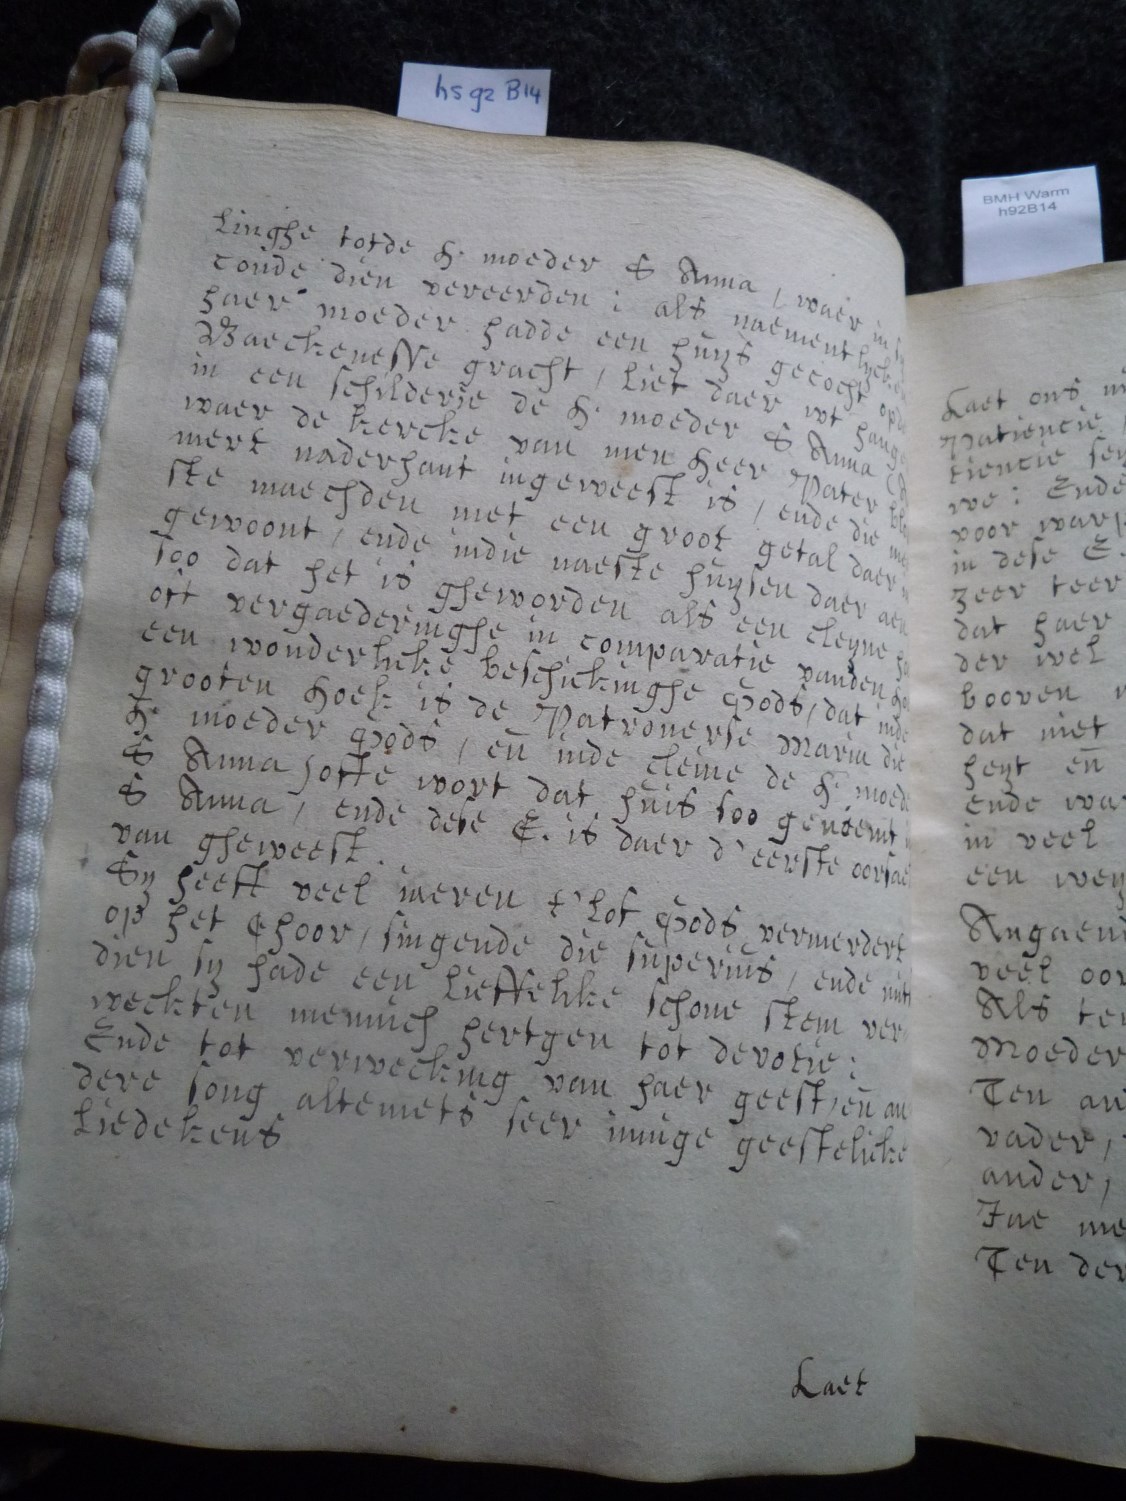 hs 92 B14
BMH Warm
h92B14
linghe totde H. moeder S Anna, waer in
conde dien vereerden: als naementlycke
haer moeder hadde een huys gecocht op
Baeckenesse gracht, liet daer wt
in een schilderje de H. moeder S Anna
waer de kercke van men Heer Pater
mert naderhant ingeweest is, ende die
ste maechden met een groot getal daer
gewoont, ende indie naeste huysen daer aen
soo dat het is gheworden als een cleyne
oft vergaederinghe in comparatie vanden
een wonderlicke beschickinghe Gods, dat inde
grooten Hoek is de Patronerse Maria die
H. moeder Gods, en̄ inde cleine de H. moeder
S Anna, ofte wort dat huis soo genoemt
S Anna, ende dese E. is daer d'eerste oorsaec
van gheweest.
Sy heeft veel jaeren t'lof Gods vermerdert
op het Choor, singende die superius, ende
dien sy hade een lieffelicke schone stem ver-
weckten mennich hertgen tot devotie:
Ende tot verwecking van haer geest, en̄ an
dere song altemets seer innige geestelicke
liedekens
Laet
Laet ons
Patiencie
tiencie
we: Ende
voor
in dese E.
zeer teer
dat haer
der wel
booven
dat niet
heyt en̄
ende
in veel
een
Angaen
veel
Als
Moeder
Ten
vader,
ander,
Jae me
Ten der